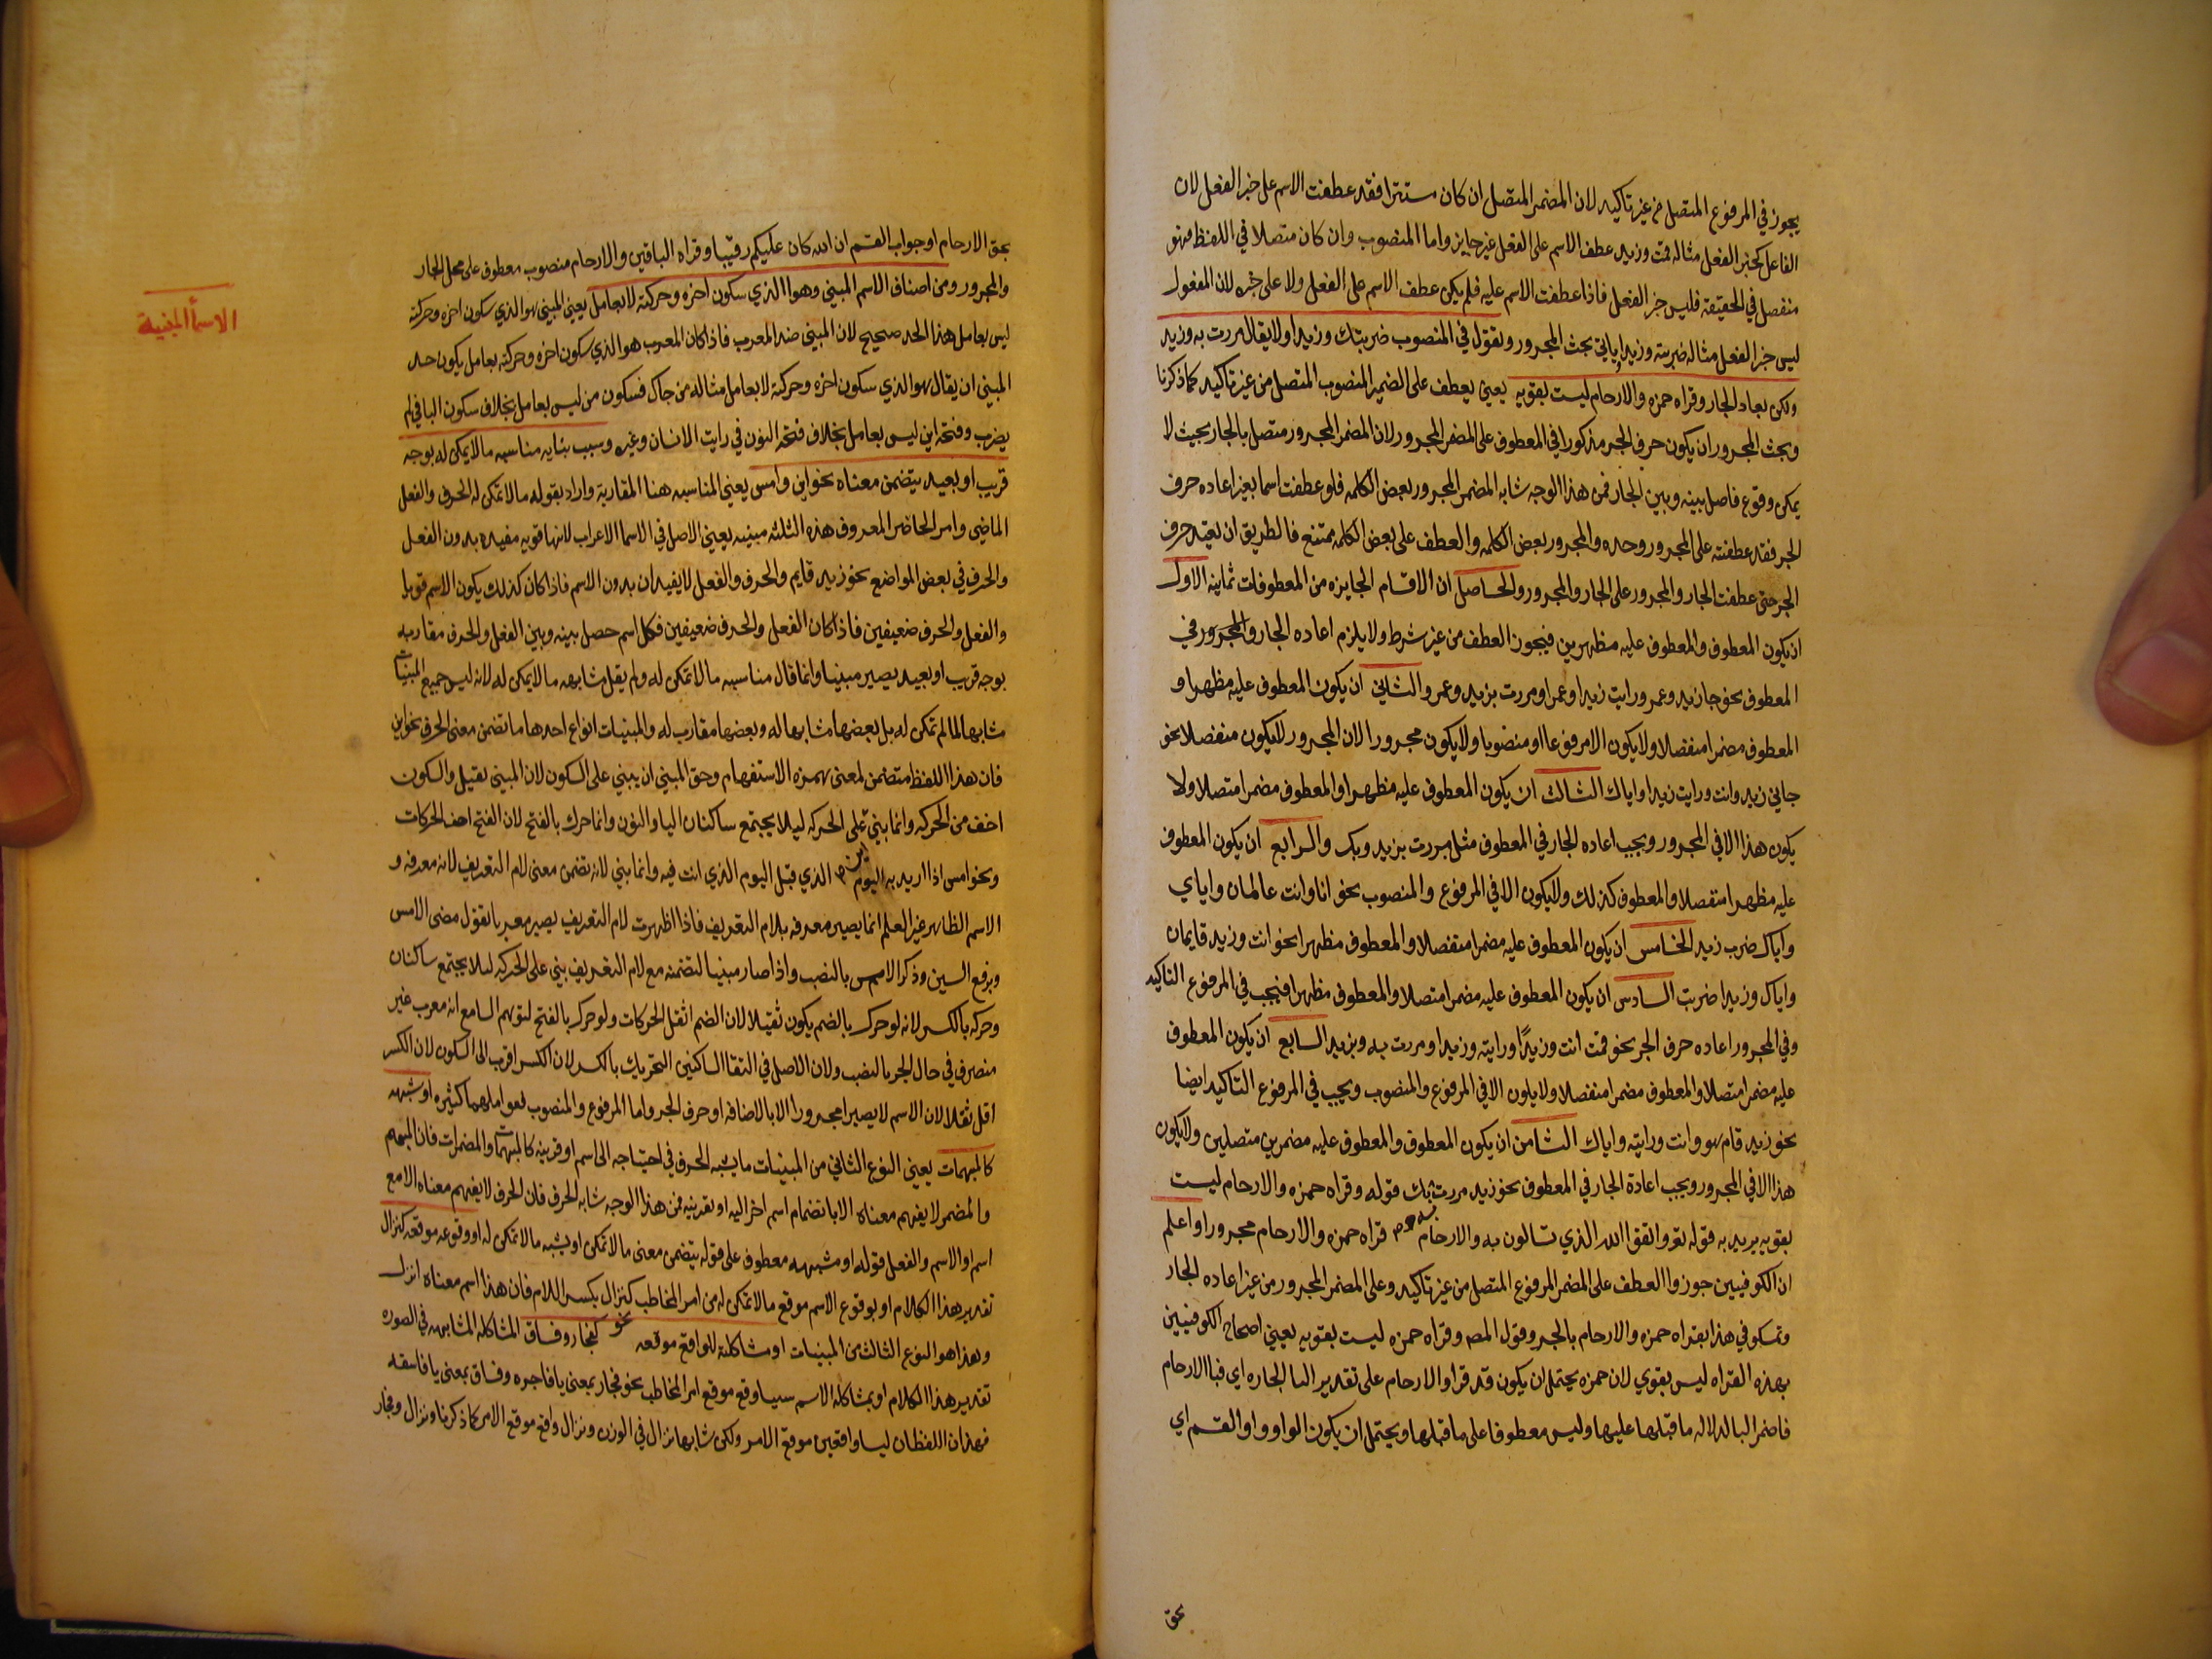 يجوز في المرفوع المتصل من غير تاكيد لان المضمر المتصل ان كان مستترا فقد عطفت الاسم على جز الفعل لان
الفاعل كجز الفعل مثاله قمت وزيد عطف الاسم على الفعل غير جايز واما المنصوب وان كان متصلا في اللفظ فهو
منفصل في الحقيقة فليس جز الفعل فاذا عطفت الاسم عليه فلم يكن عطف الاسم على الفعل ولا على جزه لان المفعول
ليس جز الفعل مثاله ضربته وزيدا ياتي بحث المجرور وتقول في المنصوب ضربتك وزيدا ولا يقال مررت به وزيد
ولكن يعاد الجار وقراه حمزه والارحام ليست بقويه يعني يعطف على الضمير المنصوب المتصل من غير تاكيد كما ذكرنا
وبحث المجرور ان يكون حرف الجر مذكورا في المعطوف على المضمر المجرور لان المضمر المجرور متصل بالجار بحيث لا
يمكن وقوع فاصل بينه وبين الجار فمن هذا الوجه شابه المضمر المجرور بعض الكلمه فلو عطفت اسما بغير اعاده حرف
الجر فقد عطفته على المجرور وحده والمجرور بعض الكلمه والعطف على بعض الكلمه ممتنع فالطريق ان تعيد حرف
الجر حتى عطفت الجار والمجرور على الجار والمجرور والحاصل ان الاقسام الجايزه من المعطوفات ثمانيه الاول
ان يكون المعطوف والمعطوف عليه مظهرين فيجوز العطف من غير شرط ولا يلزم اعاده الجار والمجرور في
المعطوف نحو جا زيد وعمرو رايت زيدا وعمرا ومررت بزيد وعمرو والثاني ان يكون المعطوف عليه مظهرا و
المعطوف مضمرا منفصلا ولا يكون الا مرفوعا او منصوبا ولا يكون مجرورا لان المجرور لا يكون منفصلا نحو
جاني زيد وانت ورايت زيدا واياك الثالث ان يكون المعطوف عليه مظهرا والمعطوف مضمرا متصلا ولا
يكون هذا الا في المجرور ويجب اعاده الجار في المعطوف مثل مررت بزيد وبك والرابع ان يكون المعطوف
عليه مظهرا منفصلا والمعطوف كذلك ولا يكون الا في المرفوع والمنصوب نحو انا وانت عالمان واياي
واياك ضرب زيد الخامس ان يكون المعطوف عليه مضمرا منفصلا والمعطوف مظهرا نحو انت وزيد قايمان
واياك وزيدا ضربت السادس ان يكون المعطوف عليه مضمرا متصلا والمعطوف مظهرا فيجب في المرفوع التاكيد
وفي المجرور اعاده حرف الجر نحو قمت انت وزيدًا ورايته وزيدا ومررت به وبزيد السابع ان يكون المعطوف
عليه مضمرا متصلا والمعطوف مضمرا منفصلا ولا يكون الا في المرفوع والمنصوب ويجب في المرفوع التاكيد ايضا
نحو زيد قام هو وانت ورايته واياك الثامن ان يكون المعطوف والمعطوف عليه مضمرين متصلين ولا يكون
هذا الا في المجرور ويجب اعادة الجار في المعطوف نحو زيد مررت بك قوله وقراه حمزه والارحام ليست
بقويه يريد به قوله تع واتقوا الله الذي تسالون به والارحام قراه حمزه والارحام مجرورا واعلم
ان الكوفيين جوزوا العطف على المضمر المرفوع المتصل من غير تاكيد وعلى المضمر المجرور من غير اعاده الجار
وتمسكو في هذا بقراه حمزه والارحام بالجر وقول المص وقراه حمزه ليست بقويه يعني اصحاح الكوفيين
بهذه القراه ليس بقوي لان حمزه يحتمل ان يكون قد قرا والارحام على تقدير البا الجاره اي فبا الارحام
فاضمر البا لدلاله ما قبلها عليها وليس معطوفا على ما قبلها ويحتمل ان يكون الواو واو القسم اي
بحق
بحق الارحام او جواب القسم ان الله كان عليكم رقيبا وقراه الباقين والارحام منصوب معطوف على محل الجار
والمجرور ومن اصناف الاسم المبني وهوا الذي سكون اخره وحركته لا بعامل يعني المبني هو الذي سكون اخره وحركته
ليس بعامل هذا الحد صحيح لان المبني ضد المعرب فاذا كان المعرب هو الذي سكون اخره وحركته بعامل يكون حد
المبني ان يقال هو الذي سكون اخره وحركته لا بعامل مثاله من جاك فسكون من ليس بعامل بخلاف سكون البا في لم
يضرب وفتحه اين ليس بعامل بخلاف فتحه النون في رايت الانسان وغيره وسبب بنايه مناسبه ما لا يمكن له بوجه
قريب او بعيد يتضمن معناه نحو اين وامس يعني المناسبه هنا المقاربة واراد بقوله ما لا تمكن له الحرف والفعل
الماضي وامر الحاضر المعروف هذه الثلثه مبنيه يعني الاصل في الاسما الاعراب لانها قويه مفيده بدون الفعل
والحرف في بعض المواضع نحو زيد قايم والحرف والفعل لا يفيدان بدون الاسم فاذا كان كذلك يكون الاسم قويا
والفعل والحرف ضعيفين فاذا كان الفعل والحرف ضعيفين فكل اسم حصل بينه وبين الفعل والحرف مقاربه
بوجه قريب او بعيد يصير مبنيا وانما قال مناسبه ما لا تمكن له ولم يقل مشابهه ما لا يمكن له لانه ليس جميع المبنيات
مشابها لما لم تمكن له بل بعضها مشابها له وبعضها مقارب له والمبنيات انواع احدها ما تضمن معنى الحرف نحو اين
فان هذا اللفظ متضمن لمعنى همزه الاستفهام وحق المبني ان يبني على السكون لان المبني ثقيل والسكون
اخف من الحركه وانما بني على الحركه ليلا يجتمع ساكنان اليا والنون وانما حرك بالفتح لان الفتح اخف الحركات
ونحو امس اذا اريد به اليوم الذي قبل اليوم الذي انت فيه وانما بني لانه تضمن معنى لام التعريف لانه معرفه و
الاسم الظاهر غير العلم انما يصير معرفه بلام التعريف فاذا اظهرت لام التعريف يصير معربا تقول مضى الامس
وبرفع السين وذكر الامس بالنصب واذا صار مبنيا لتضمنه مع لام التعريف بني على الحركه ليلا يجتمع ساكنان
وحركه بالكسر لانه لو حرك بالضم يكون ثقيلا لان الضم اثقل الحركات ولو حرك بالفتح لتوهم السامع انه معرب غير
منصرف في حال الجر بالنصب ولان الاصل في التقا الساكنين التحريك بالكسر لان الكسر اقرب الى السكون لان الكسر
اقل ثقلا لان الاسم لا يصير امجرورا الا بالاضافه او حرف الجر واما المرفوع والمنصوب فعواملهما كثيره او شبهه
كالمبهمات يعني النوع الثاني من المبنيات ما يشبه الحرف في احتياجه الى اسم او قرينه كالمبهمات والمضمرات فان المبهم
والمضمر لا يفهم معناه الا بانضمام اسم اخر اليه او بقرينه فمن هذا الوجه شابه الحرف فان الحرف لا يفهم معناه الا مع
اسم او الاسم والفعل قوله او مشبهه معطوف على قوله يتضمن معنى ما لا تمكن او يشبه ما لا تمكن له او وقوعه موقعه كنزال
تقدير هذا الكلام او بوقوع الاسم موقع ما لا تمكن له من امر المخاطب كنزال بكسر اللام فان هذا اسم معناه انزل
وهذا هو النوع الثالث من المبنيات او مشاكلته للواقع موقعه نحو كفجار وفساق المشاكله المشابهه في الصوره
تقدير هذا الكلام او بمشاكله الاسم سيا وقع موقع امر المخاطب نحو فجار بمعنى يا فاجره وفساق بمعنى يا فاسقه
فهذان اللفظان ليسا واقعين موقع الامر ولكن شابها نزال في الوزن ونزال واقع موقع الامر كما ذكرنا ونزال وفجار
الاسمأ المبنية